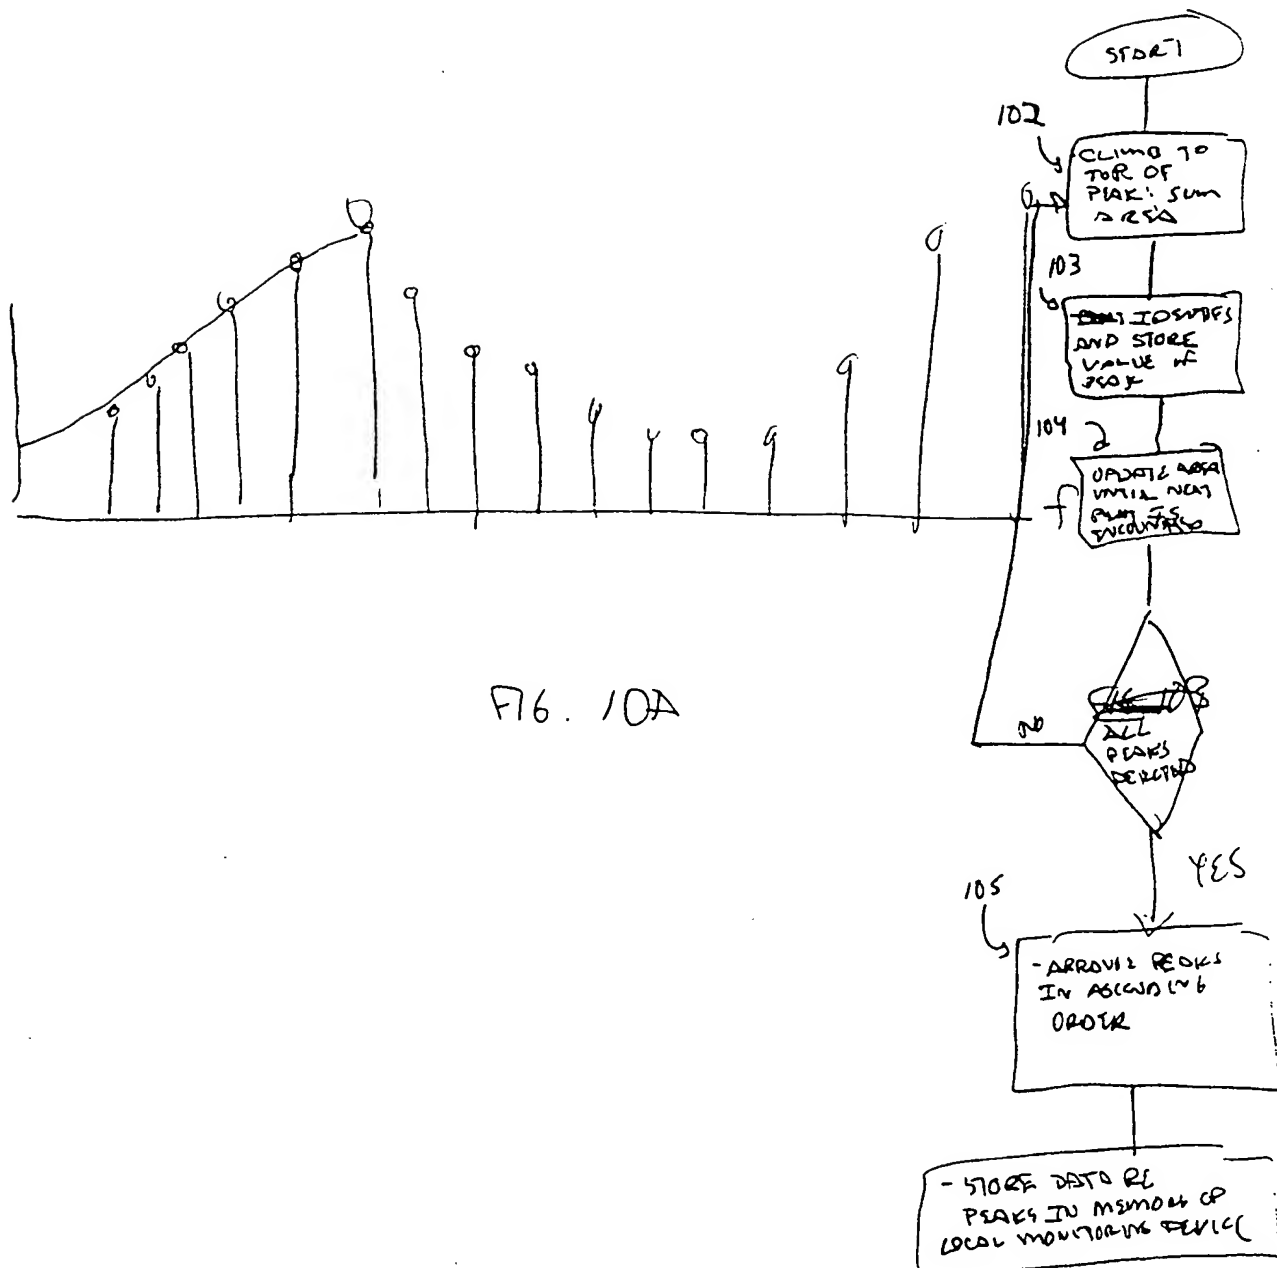 START
102
CLIMB TO
TOP OF
PEAK: SUM
AREA
103
IDENTIFS
AND STORE
VALUE of
PEAK
104
UPDATE AREA
UNTIL NEXT
PEAK IS
f
ALL
PEAKS
NO
FIG. 10A
YES
105
PEAKS
IN ASCENDING
ORDER
- STORE DATA RE
PEAKS IN MEMORY OF
LOCAL MONITORING DEVICE